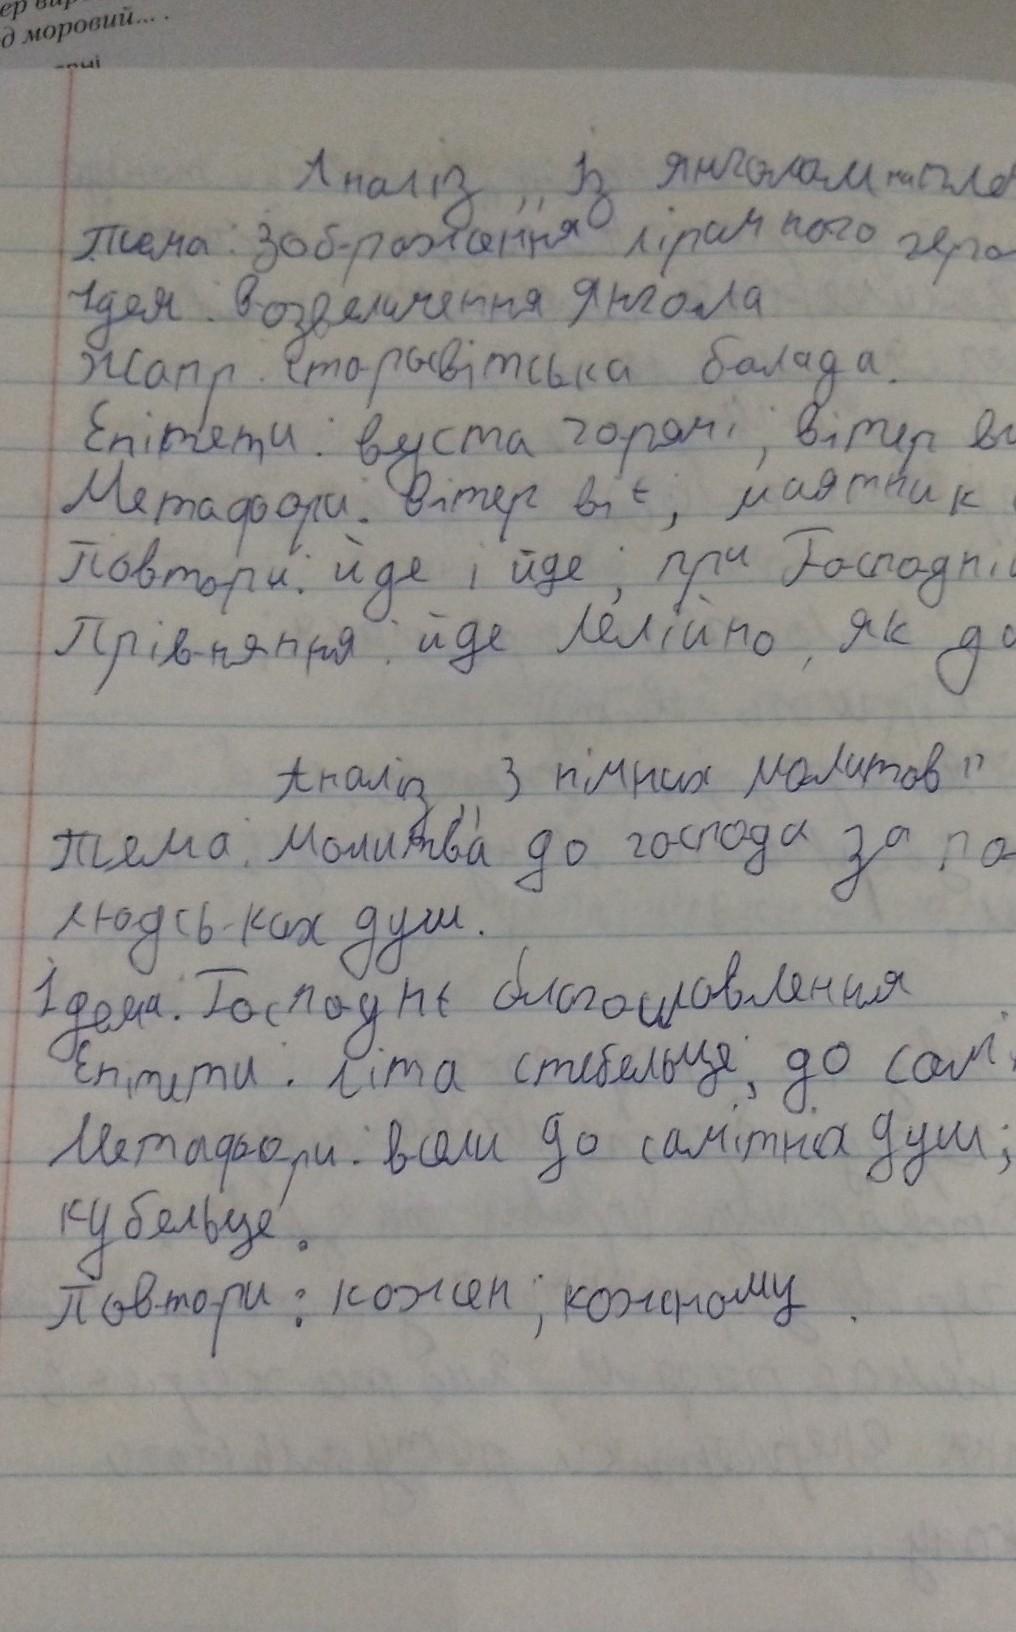 д моровий... .
Аналіз ,, Із янголам на пле
Тема: Зображення ліричного геро
Ідея: Возвеличення янгола
Жанр: старосвітська балада.
Епітети: вуста гарячі, вітер ви
Метафори: вітер віє, маятник
Повтори: йде і йде, при Господні
Прівняння: йде лелійно, як до
Аналіз ,, З німих молитов"
Тема: Молитва до господа за по
людсь-ких душ.
Ідема: Господнє благословлення
Епітети: літа стебельце, до самі
Метафори: вели до самітніх душ;
кубельце.
Повтори: кожен; кожному.